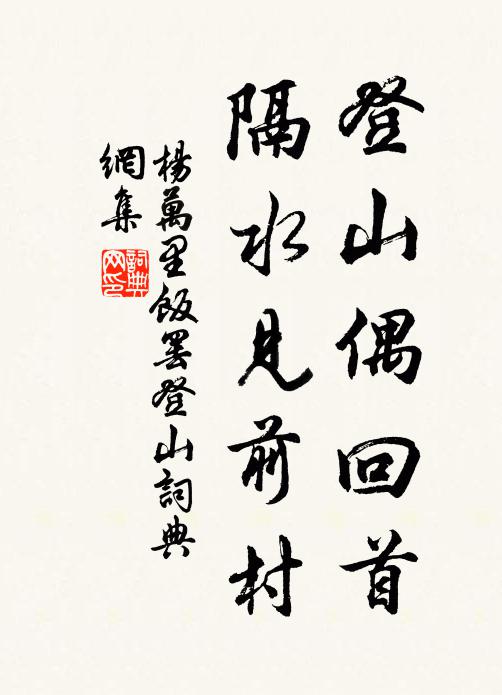 登山偶回首
隔水見前村
楊萬里飯罷登山詞典
網集
詞典
网印